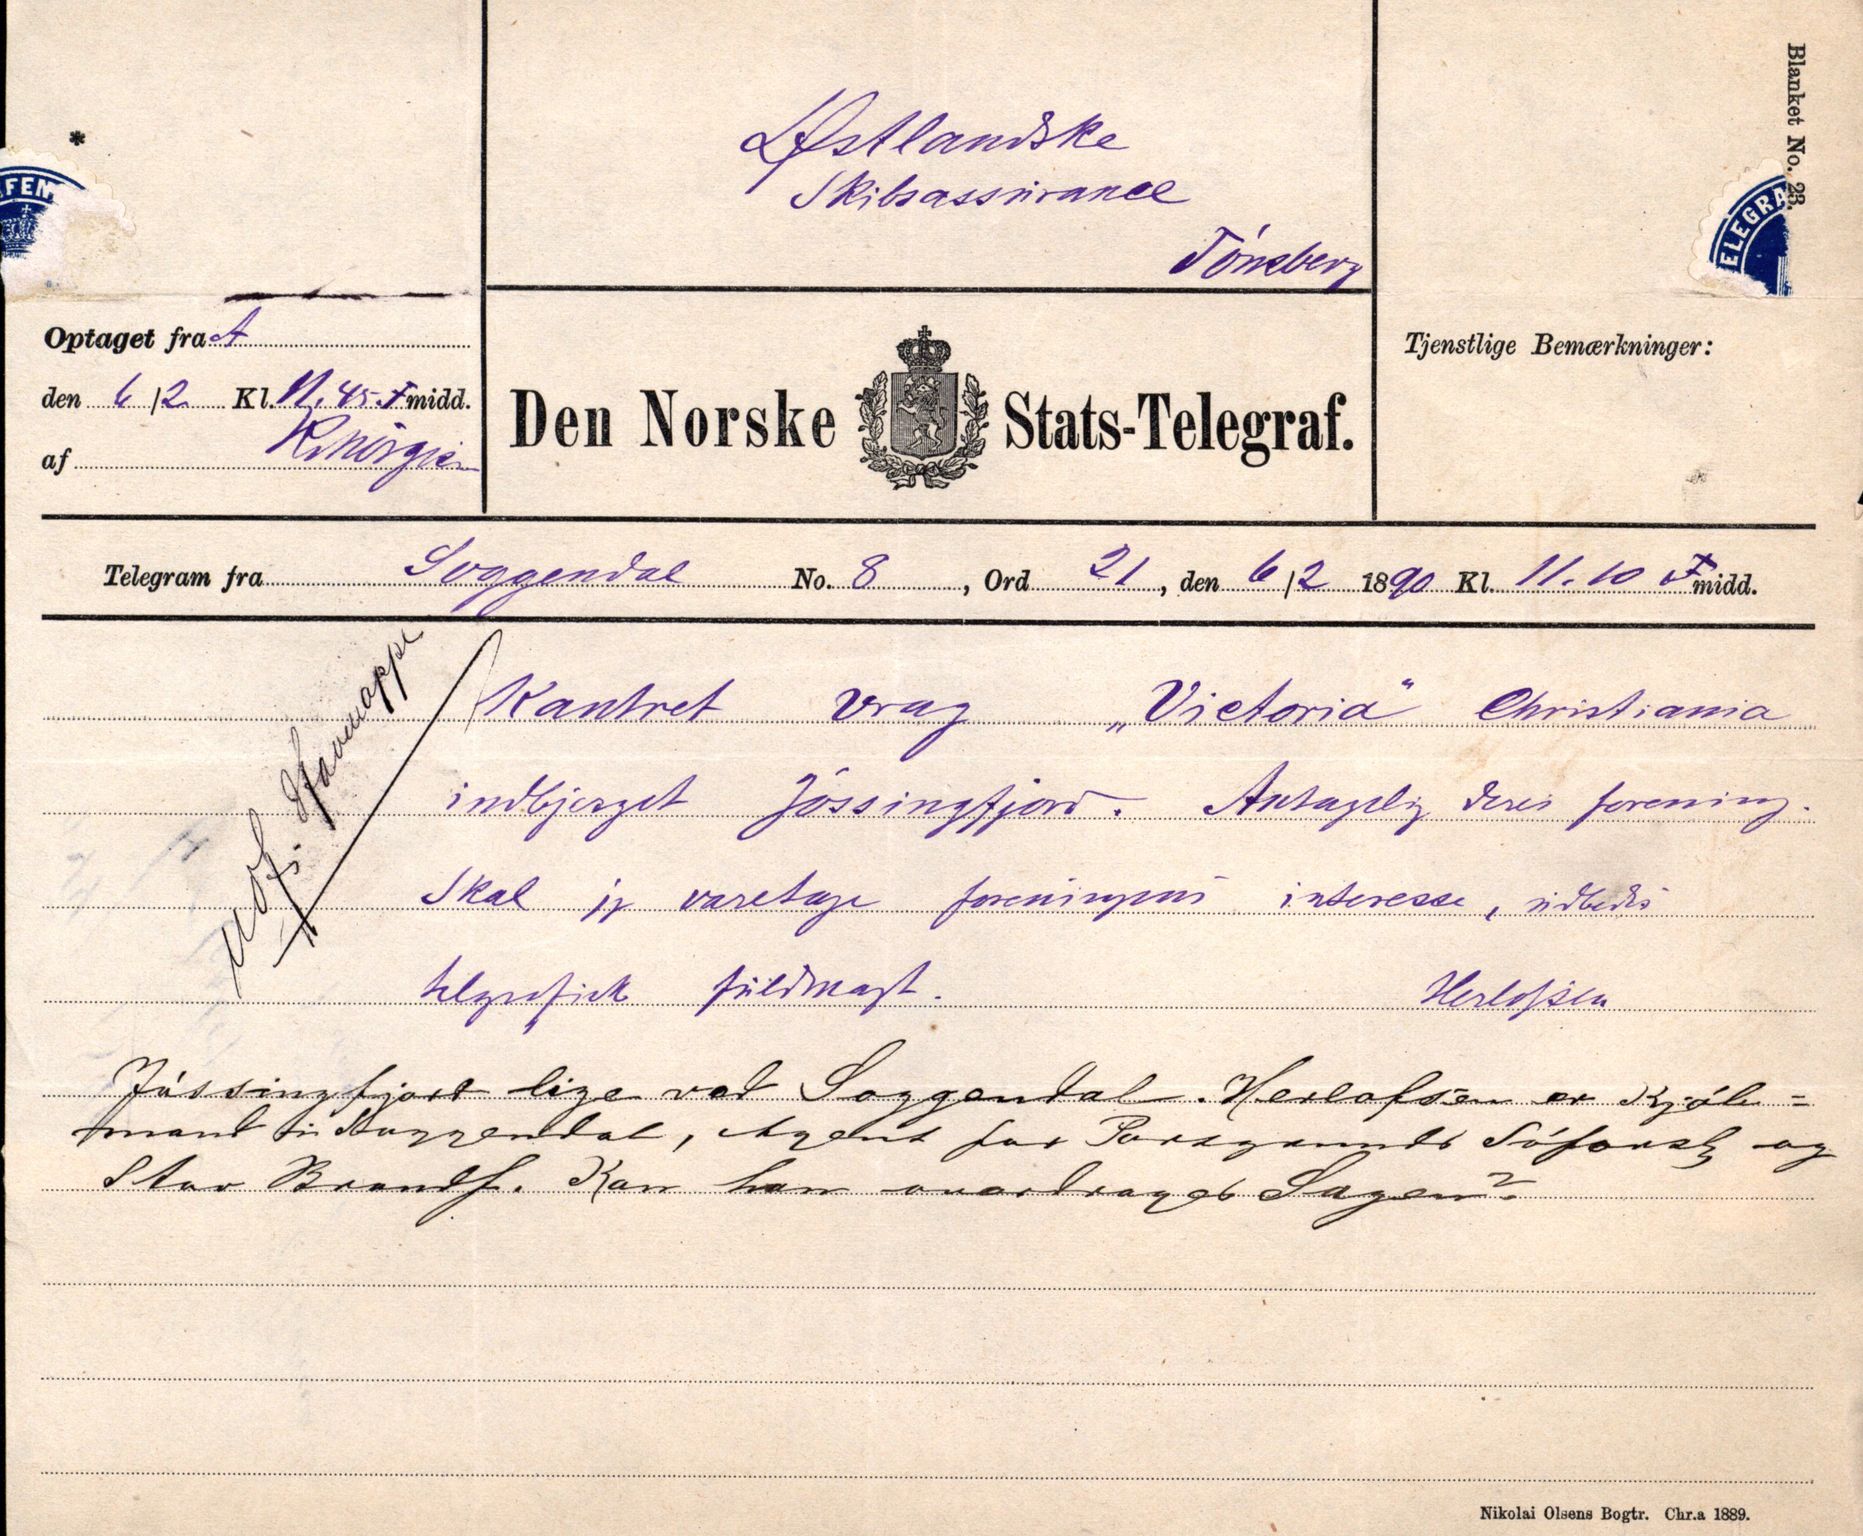 Blanket No. 23.
*
Østlandske
Skibsassurance
Tönsberg
Optaget fra A
den 6/2 Kl. 11.45 F midd.
af
Den Norske Stats-Telegraf.
Tjenstlige Bemærkninger:
Telegram fra Soggendal No. 8, Ord 21, den 6/2 1890 Kl. 11.10 F midd.
Kantret vrag „Victoria“ Christiania
indbjerget Jössingfjord. Antagelig deres forening.
Skal jeg varetage foreningens interesse, udbedes
telegrafisk fuldmagt. Herlofsen
Jössingfjord lige ved Soggendal. Herlofsen er Kjöb=
mand i Soggendal, Agent for Porsgrunds Söforsk og
Stor Brandf. Kan han overdrages Sagen?
Nikolai Olsens Bogtr. Chr.a 1889.